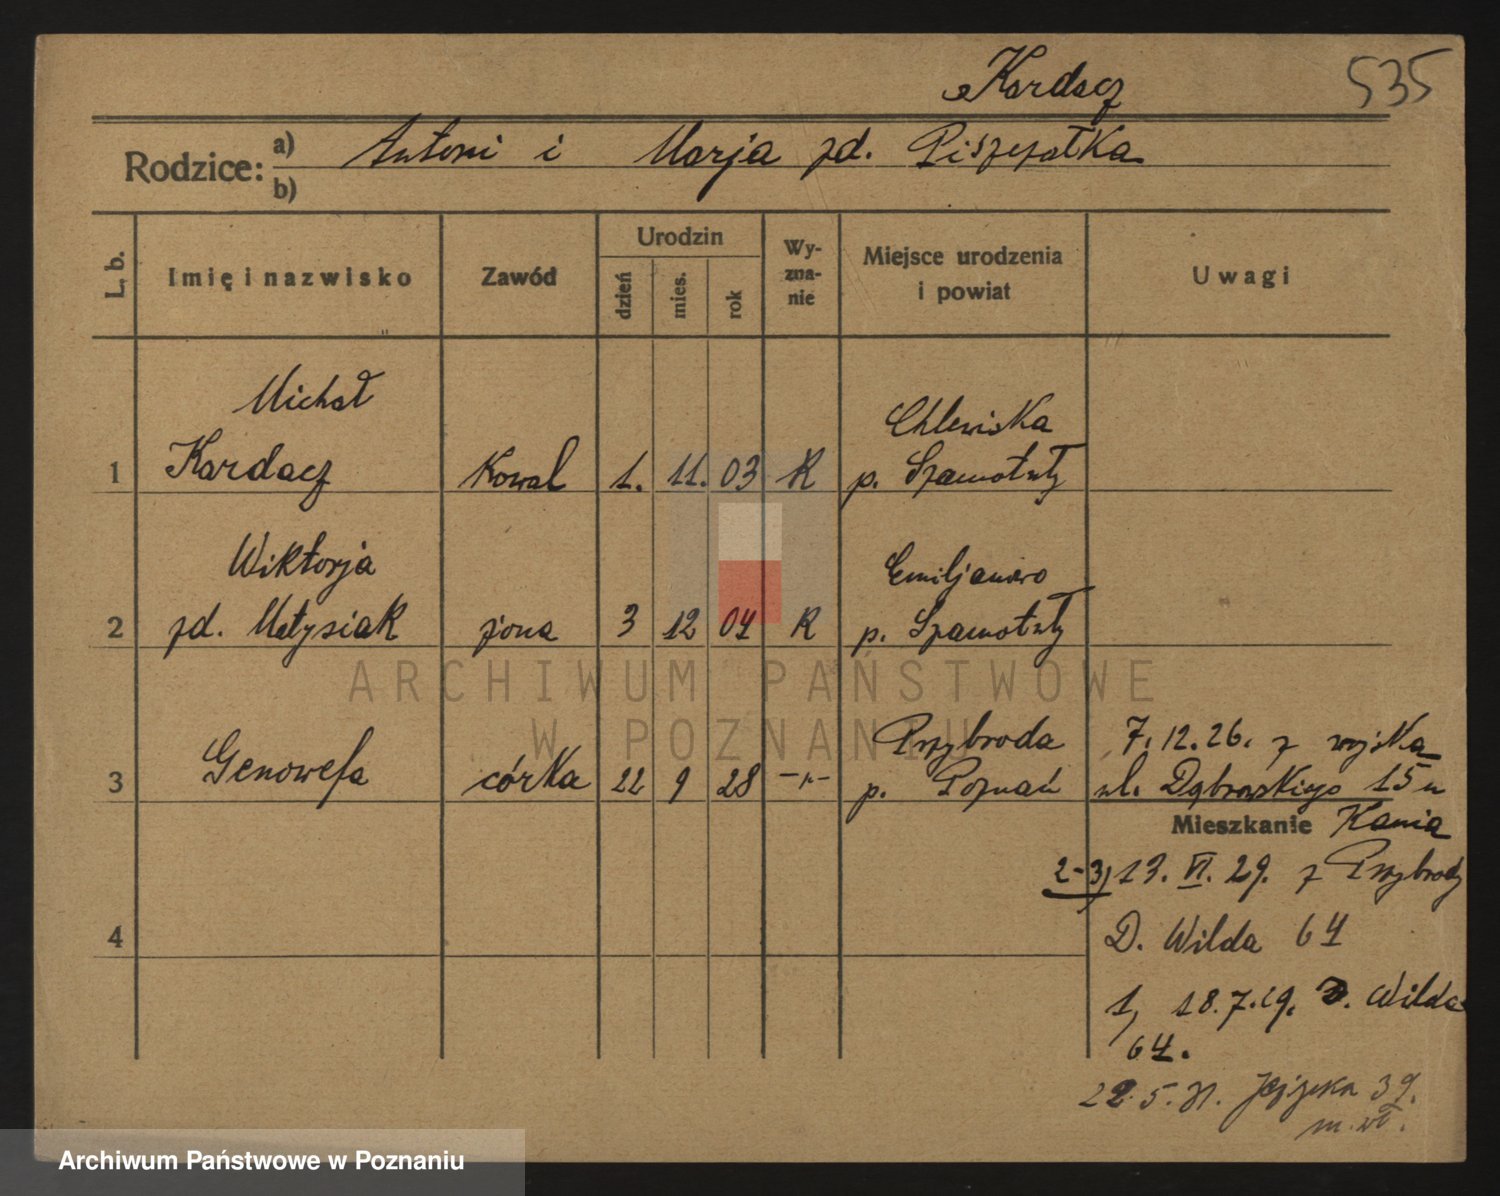 Kardacz 535
Rodzice: a) Antoni i Marja zd. Piszczałka
b)
L. b. Imię i nazwisko Zawód Urodzin dzień mies. rok Wyznanie Miejsce urodzenia i powiat Uwagi
Michał Chlewiska
1 Kardacz Kowal 1. 11. 03 K p. Szamotuły
Wiktorja Emiljanowo
2 zd. Matysiak żona 3 12 04 K p. Szamotuły
Przybroda 7. 12. 26. z wojska
3 Genowefa córka 22 9 28 -"- p. Poznań ul. Dąbrowskiego 15 u
Mieszkanie Kania
2-3) 13. VI. 29. z Przybrody
4 D. Wilda 64
1) 18. 7. 29. D. Wilda
64.
22. 5. 31.
39.
ARCHIWUM PAŃSTWOWE
W POZNANIU
Archiwum Państwowe w Poznaniu